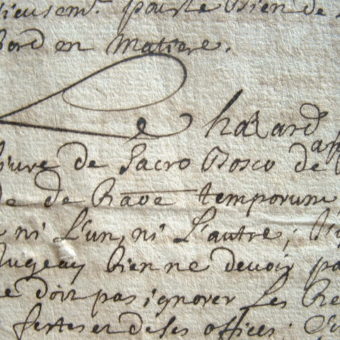 pour le bien de
bord en Matiere.
Le hazard
livre de Sacro Bosco de
de de Rave temporum
ni L'un, ni L'autre;
bien ne devoir pa
e doit pas ignorer les Re
fertes et de ses offices.